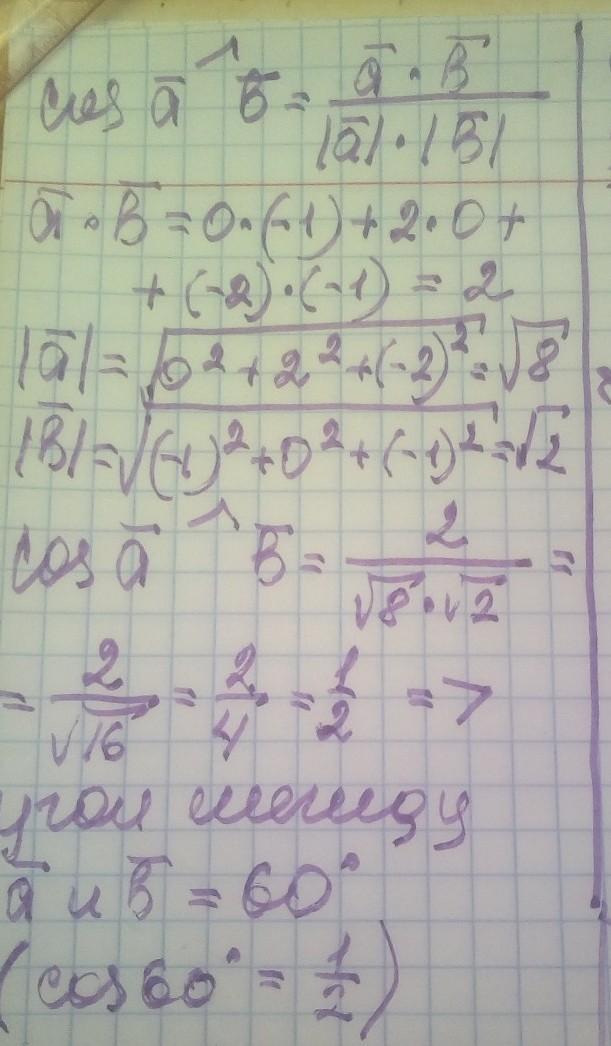 cos a̅ ^ b̅ = (a̅ · b̅) / (|a̅| · |b̅|)
a̅ · b̅ = 0·(-1) + 2·0 +
+ (-2)·(-1) = 2
|a̅| = √(0² + 2² + (-2)²) = √8
|b̅| = √((-1)² + 0² + (-1)²) = √2
cos a̅ ^ b̅ = 2 / (√8 · √2) =
= 2/√16 = 2/4 = 1/2 =>
угол между
a̅ и b̅ = 60°
(cos 60° = 1/2)